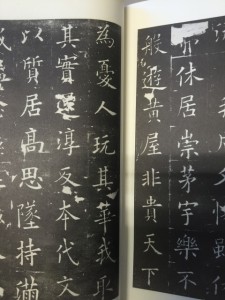 休居崇茅宇樂不
般遊黃屋非貴天下
為憂人玩其華我取
其實還淳反本代文
以質居高思墜持滿